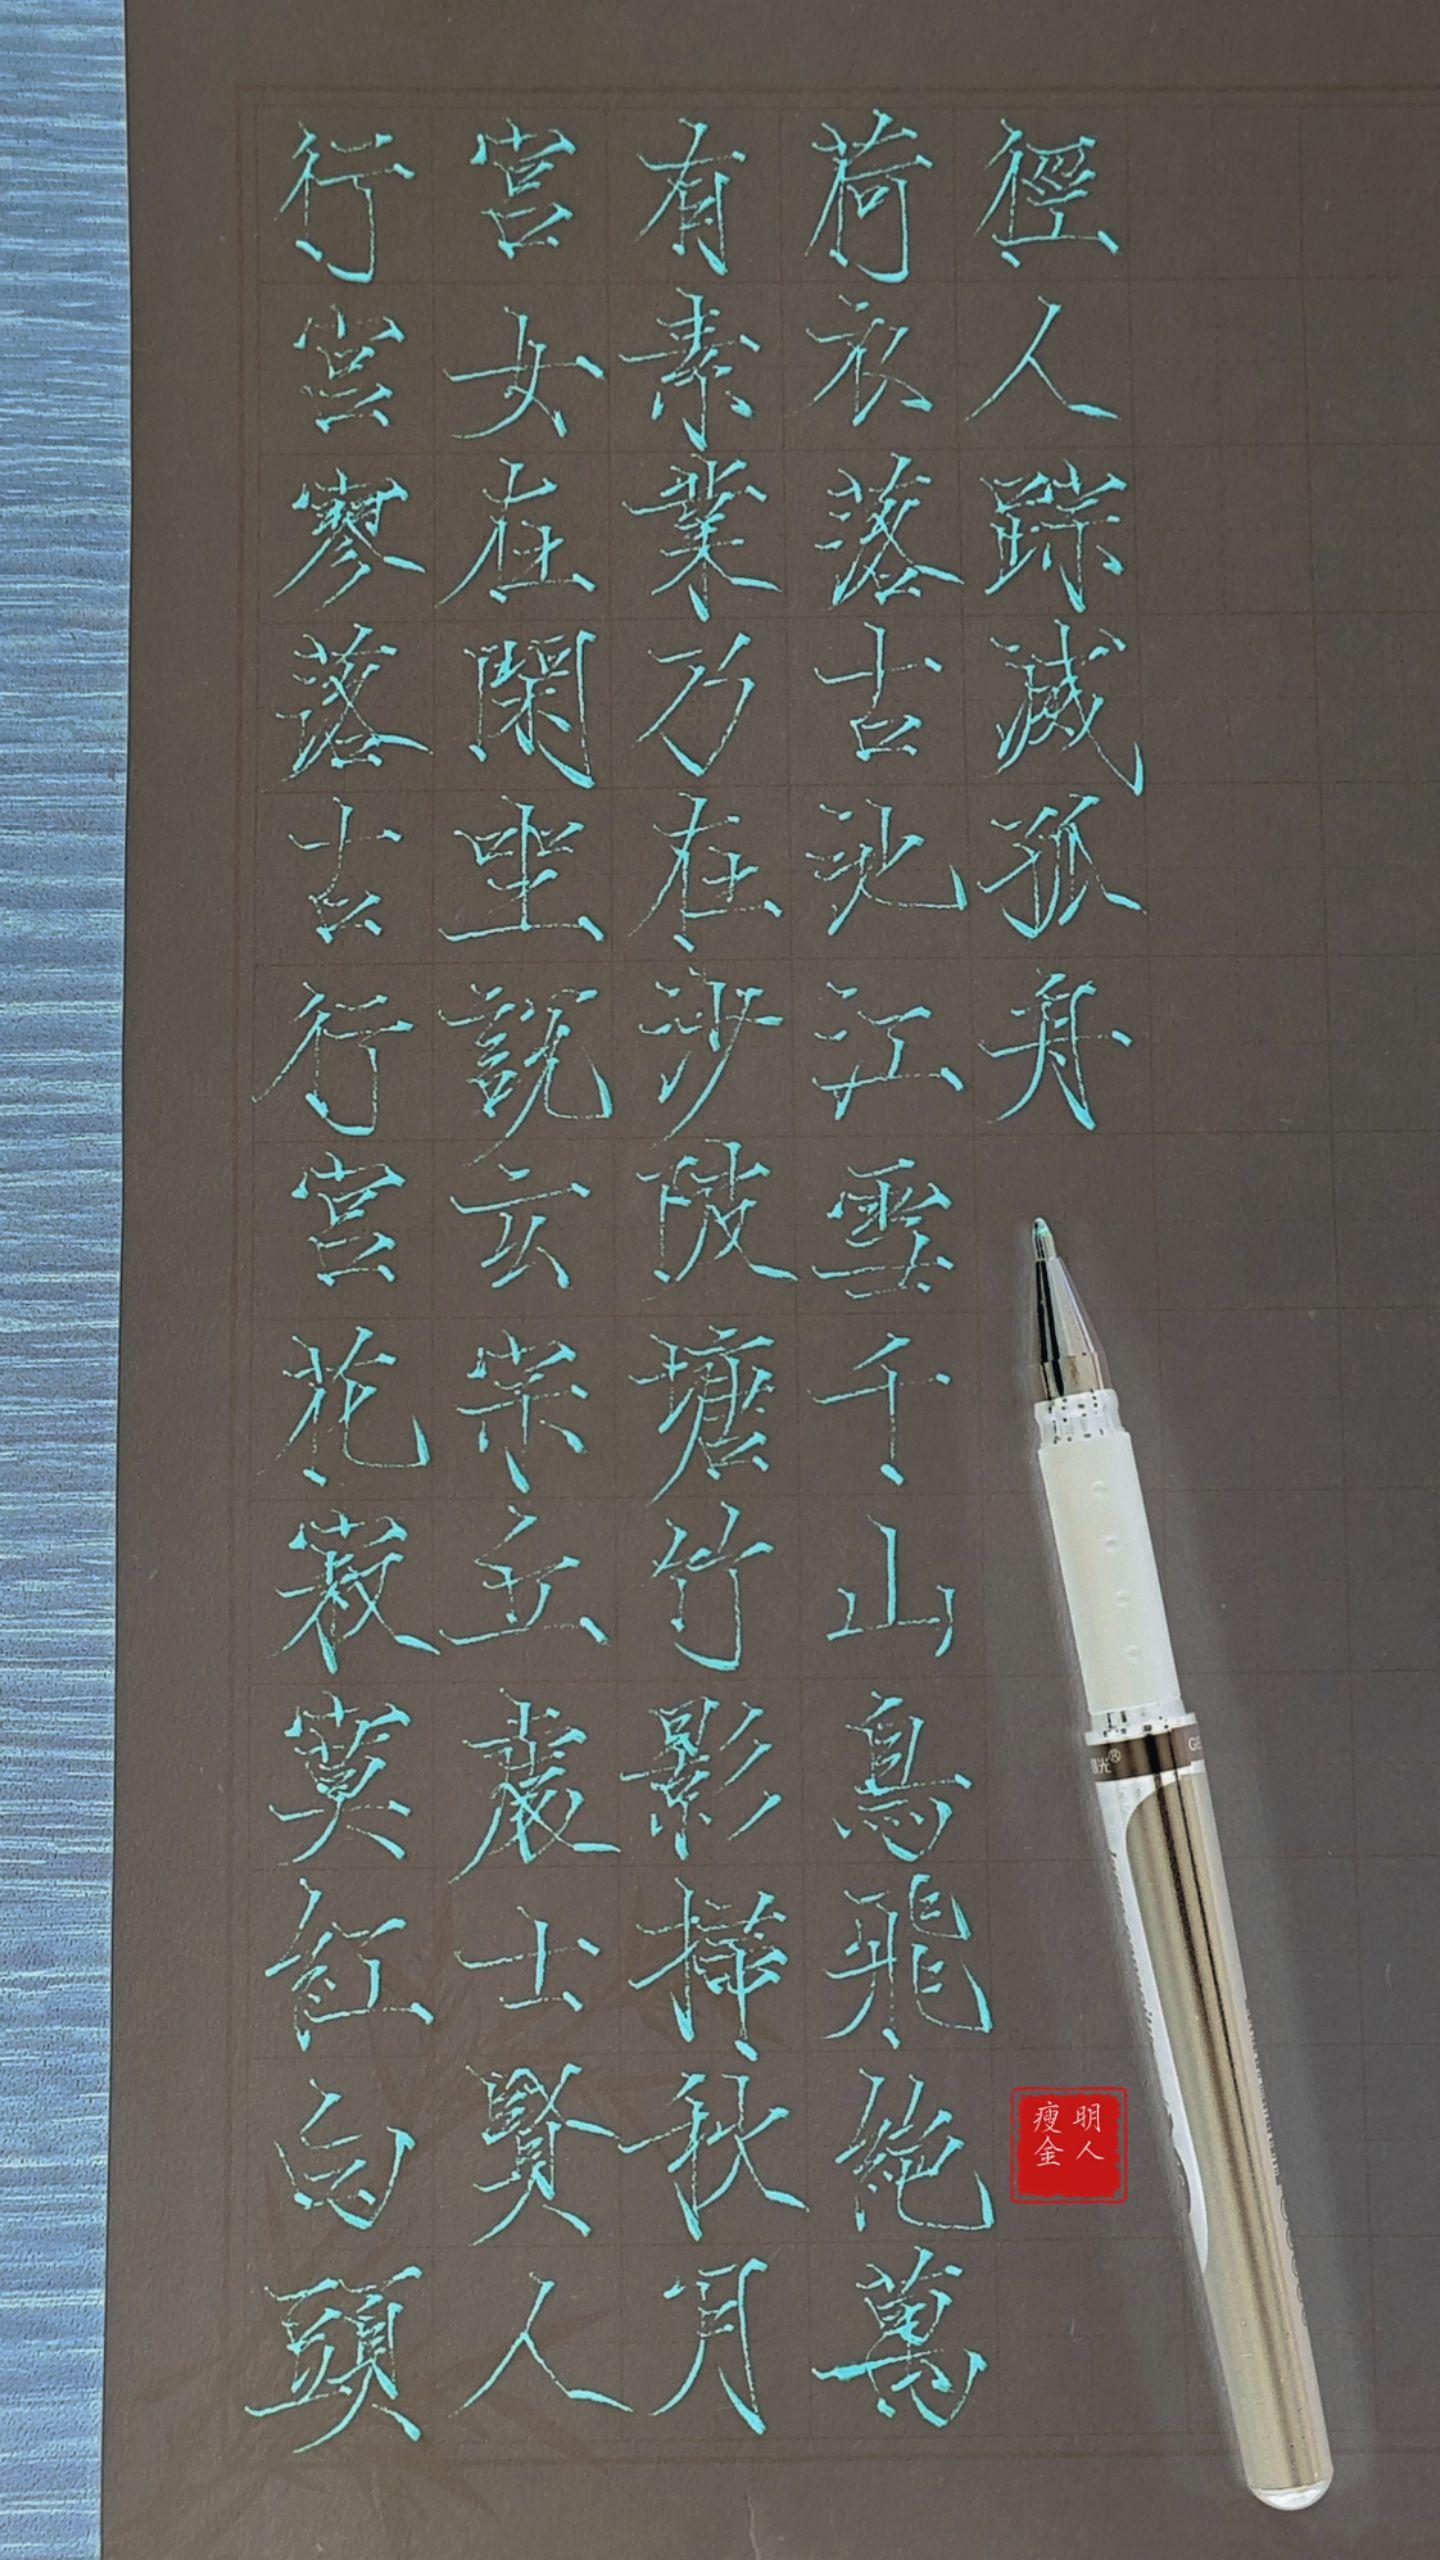 行宮寥落古行宮花寂寞紅白頭
宮女在閑坐說玄宗立處士賢人
有素業乃在沙陂塘竹影掃秋月
荷衣落古池江雪千山鳥飛絕萬
徑人踪滅孤舟
明人
瘦金
光®
GE